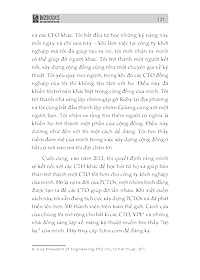 BIZBOOKS
121
và các CEO khác. Tôi bắt đầu tự học những kỹ năng này
mỗi ngày và chỉ sau này - khi làm việc tại công ty khởi
nghiệp mà tôi đã giúp tạo ra nó, tôi mới nhận ra mình
có thể giúp đỡ người khác. Tôi trở thành một người kết
nối, xây dựng cộng đồng cũng như một chuyên gia về kỹ
thuật. Tôi yêu quý mọi người, trong khi đó các CTO đồng
nghiệp của tôi thì không tận tâm với họ. Điều này đã
khiến tôi trở nên khác biệt trong cộng đồng của mình. Tôi
trở thành nhà sáng lập nhóm gặp gỡ Ruby tại địa phương
và tôi cũng bắt đầu thành lập nhóm Golang cùng với một
người bạn. Tôi nhận ra rằng tìm thêm người có nghĩa là
khiến họ trở thành một phần của cộng đồng. Điều này
dường như đến với tôi một cách dễ dàng. Tôi tìm thấy
niềm đam mê của mình trong việc xây dựng cộng đồng ở
bất cứ nơi nào mà tôi đặt chân tới.
Cuối cùng, vào năm 2011, tôi quyết định rằng mình
sẽ kết nối với các CTO khác để học hỏi từ họ và giúp bản
thân trở thành một CTO tốt hơn cho công ty khởi nghiệp
của mình. Đó là sự ra đời của 7CTOs, một nhóm bình đẳng
được tạo ra để các CTO giúp đỡ lẫn nhau. Khi viết cuốn sách
này, tôi vẫn đang tích cực xây dựng 7CTOs và đã phát
triển lên hơn 300 thành viên trên toàn thế giới. Cánh cửa
của chúng tôi mở rộng cho bất kì các CTO, VPE⁴ và những
nhà đồng sáng lập về mảng kỹ thuật muốn tìm thấy "bộ
lạc" của mình. Hãy truy cập 7ctos.com để đăng ký.
4. Vice President of Engineering: Phó chủ tịch kĩ thuật.